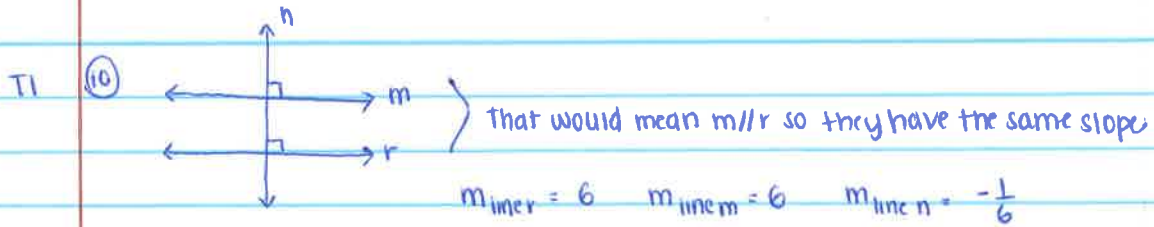 n
T1 10 m
That would mean m//r so they have the same slope
r
m line r = 6 m line m = 6 m line n = -1/6